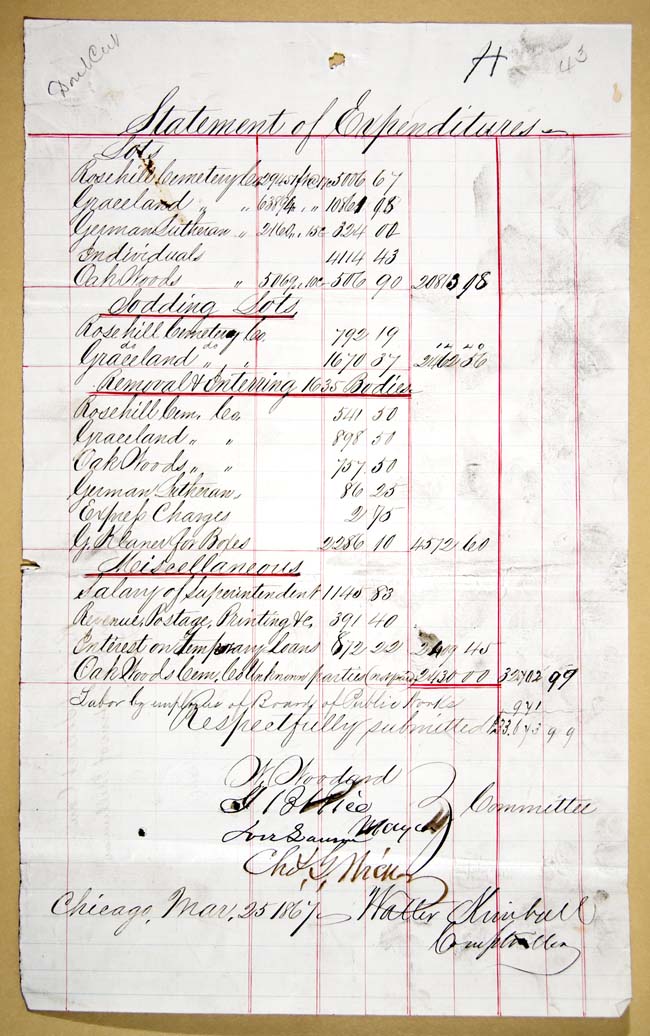 Don't Cut
H 43
Statement of Expenditures
Lots
Rosehill Cemetery Co. 17c 5006 67
Graceland " " " 10861 98
German Lutheran " 2160 " 15c 324 00
Individuals 4114 43
Oak Woods " 5069 " 10c 506 90 20813 98
Sodding Lots
Rosehill Cemetery Co. 792 19
Graceland " " 1670 37 2462 56
Removal & Interring 1635 Bodies
Rosehill Cem. Co. 541 50
Graceland " " 898 50
Oak Woods " " 757 50
German Lutheran 86 25
Express Charges 2 75
for Boxes 2286 10 4572 60
Miscellaneous
Salary of Superintendent 1145 83
Revenue, Postage, Printing &c. 391 40
Interest on Temporary Loans 872 22 2409 45
Oak Woods Cem. Co. Unknown parties 2430 00 32702 99
Labor by employes of Board of Public Works 941
Respectfully submitted $33,643 99
W. Woodard
Committee
Mayor
Chicago, Mar, 25 1867 Walter Kimball
Comptroller